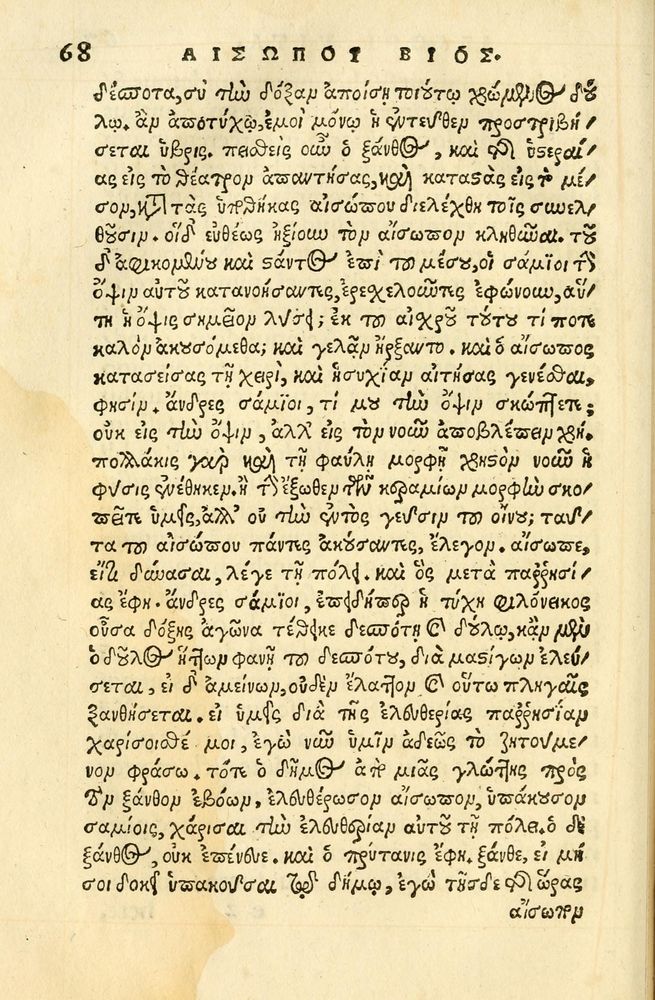 68 ΑΙΣΩΠΟΥ ΒΙΟΣ.
δέσποτα, σὺ τὴν δόξαν ἀποίσῃ τοιούτῳ χρώμενος δού
λῳ. ἂν ἀποτύχω, ἐμοὶ μόνῳ ἡ ἐντεῦθεν προστριβή/
σεται ὕβρις. πεισθεὶς οὖν ὁ ξάνθος, καὶ τῇ ὑστεραί/
ας εἰς τὸ θέατρον ἀπαντήσας, καὶ καταστὰς εἰς τὸ μέ/
σον, κατὰ τὰς ὑποθήκας αἰσώπου διελέχθη τοῖς συνελ/
θοῦσιν. οἱ δ' εὐθέως ἠξίουν τὸν αἴσωπον κληθῆναι. τοῦ
δ' ἀφικομένου καὶ στάντος ἐπὶ τοῦ μέσου, οἱ σάμιοι τὴν
ὄψιν αὐτοῦ κατανοήσαντες, ἐρεχελοῦντες ἐφώνουν, αὕ/
τη ἡ ὄψις σημεῖον λύσει; ἐκ τοῦ αἰχροῦ τούτου τί ποτε
καλὸν ἀκουσόμεθα; καὶ γελᾶν ἤρξαντο. καὶ ὁ αἴσωπος
κατασείσας τῇ χειρὶ, καὶ ἡσυχίαν αἰτήσας γενέσθαι,
φησίν. ἄνδρες σάμιοι, τί μου τὴν ὄψιν σκώπτετε;
οὐκ εἰς τὴν ὄψιν, ἀλλ' εἰς τὸν νοῦν ἀποβλέπειν χρή.
πολλάκις γὰρ καὶ τῇ φαύλῃ μορφῇ χρηστὸν νοῦν ἡ
φύσις ἐνέθηκεν. ἢ τὴν ἔξωθεν τῶν κεραμίων μορφὴν σκο/
πεῖτε ὑμεῖς, ἀλλ' οὐ τὴν ἐντὸς γεῦσιν τοῦ οἴνου; ταῦ/
τα τοῦ αἰσώπου πάντες ἀκούσαντες, ἔλεγον. αἴσωπε,
εἴ τι δύνασαι, λέγε τῇ πόλει. καὶ ὃς μετὰ παῤῥησί/
ας ἔφη. ἄνδρες σάμιοι, ἐπειδήπερ ἡ τύχη φιλόνεικος
οὖσα δόξης ἀγῶνα τέθεικε δεσπότῃ καὶ δούλῳ, κἂν μὲν
ὁ δοῦλος ἥττων φανῇ τοῦ δεσπότου, διὰ μαστίγων ἐλεύ/
σεται, εἰ δ' ἀμείνων, οὐδὲν ἔλαττον καὶ οὕτω πληγαῖς
ξανθήσεται. εἰ ὑμεῖς διὰ τῆς ἐλευθερίας παῤῥησίαν
χαρίσοισθέ μοι, ἐγὼ νῦν ὑμῖν ἀδεῶς τὸ ζητούμε/
νον φράσω. τότε ὁ δῆμος ἀπὸ μιᾶς γλώττης πρὸς
τὸν ξάνθον ἐβόων, ἐλευθέρωσον αἴσωπον, ὑπάκουσον
σαμίοις, χάρισαι τὴν ἐλευθερίαν αὐτοῦ τῇ πόλει. ὁ δὲ
ξάνθος, οὐκ ἐπένευε. καὶ ὁ πρύτανις ἔφη. ξάνθε, εἰ μή
σοι δοκεῖ ὑπακοῦσαι τῷ δήμῳ, ἐγὼ τῆσδε τῆς ὥρας
αἴσωπον